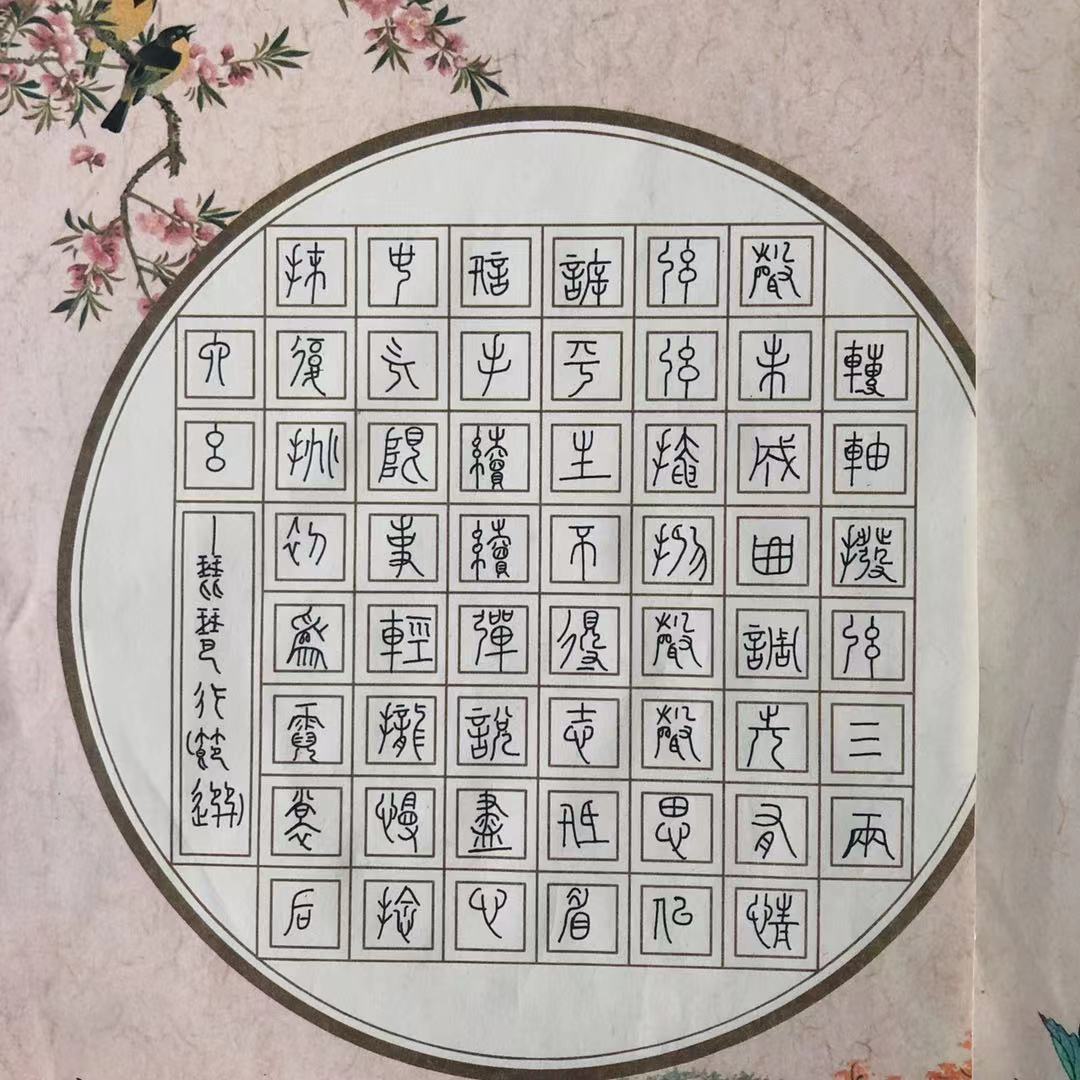 轉軸撥弦三兩
聲未成曲調先有情
弦弦掩抑聲聲思似
訴平生不得志低眉
信手續續彈說盡心
中无限事輕攏慢捻
抹復挑初為霓裳后
六幺
—琵琶行(節選)